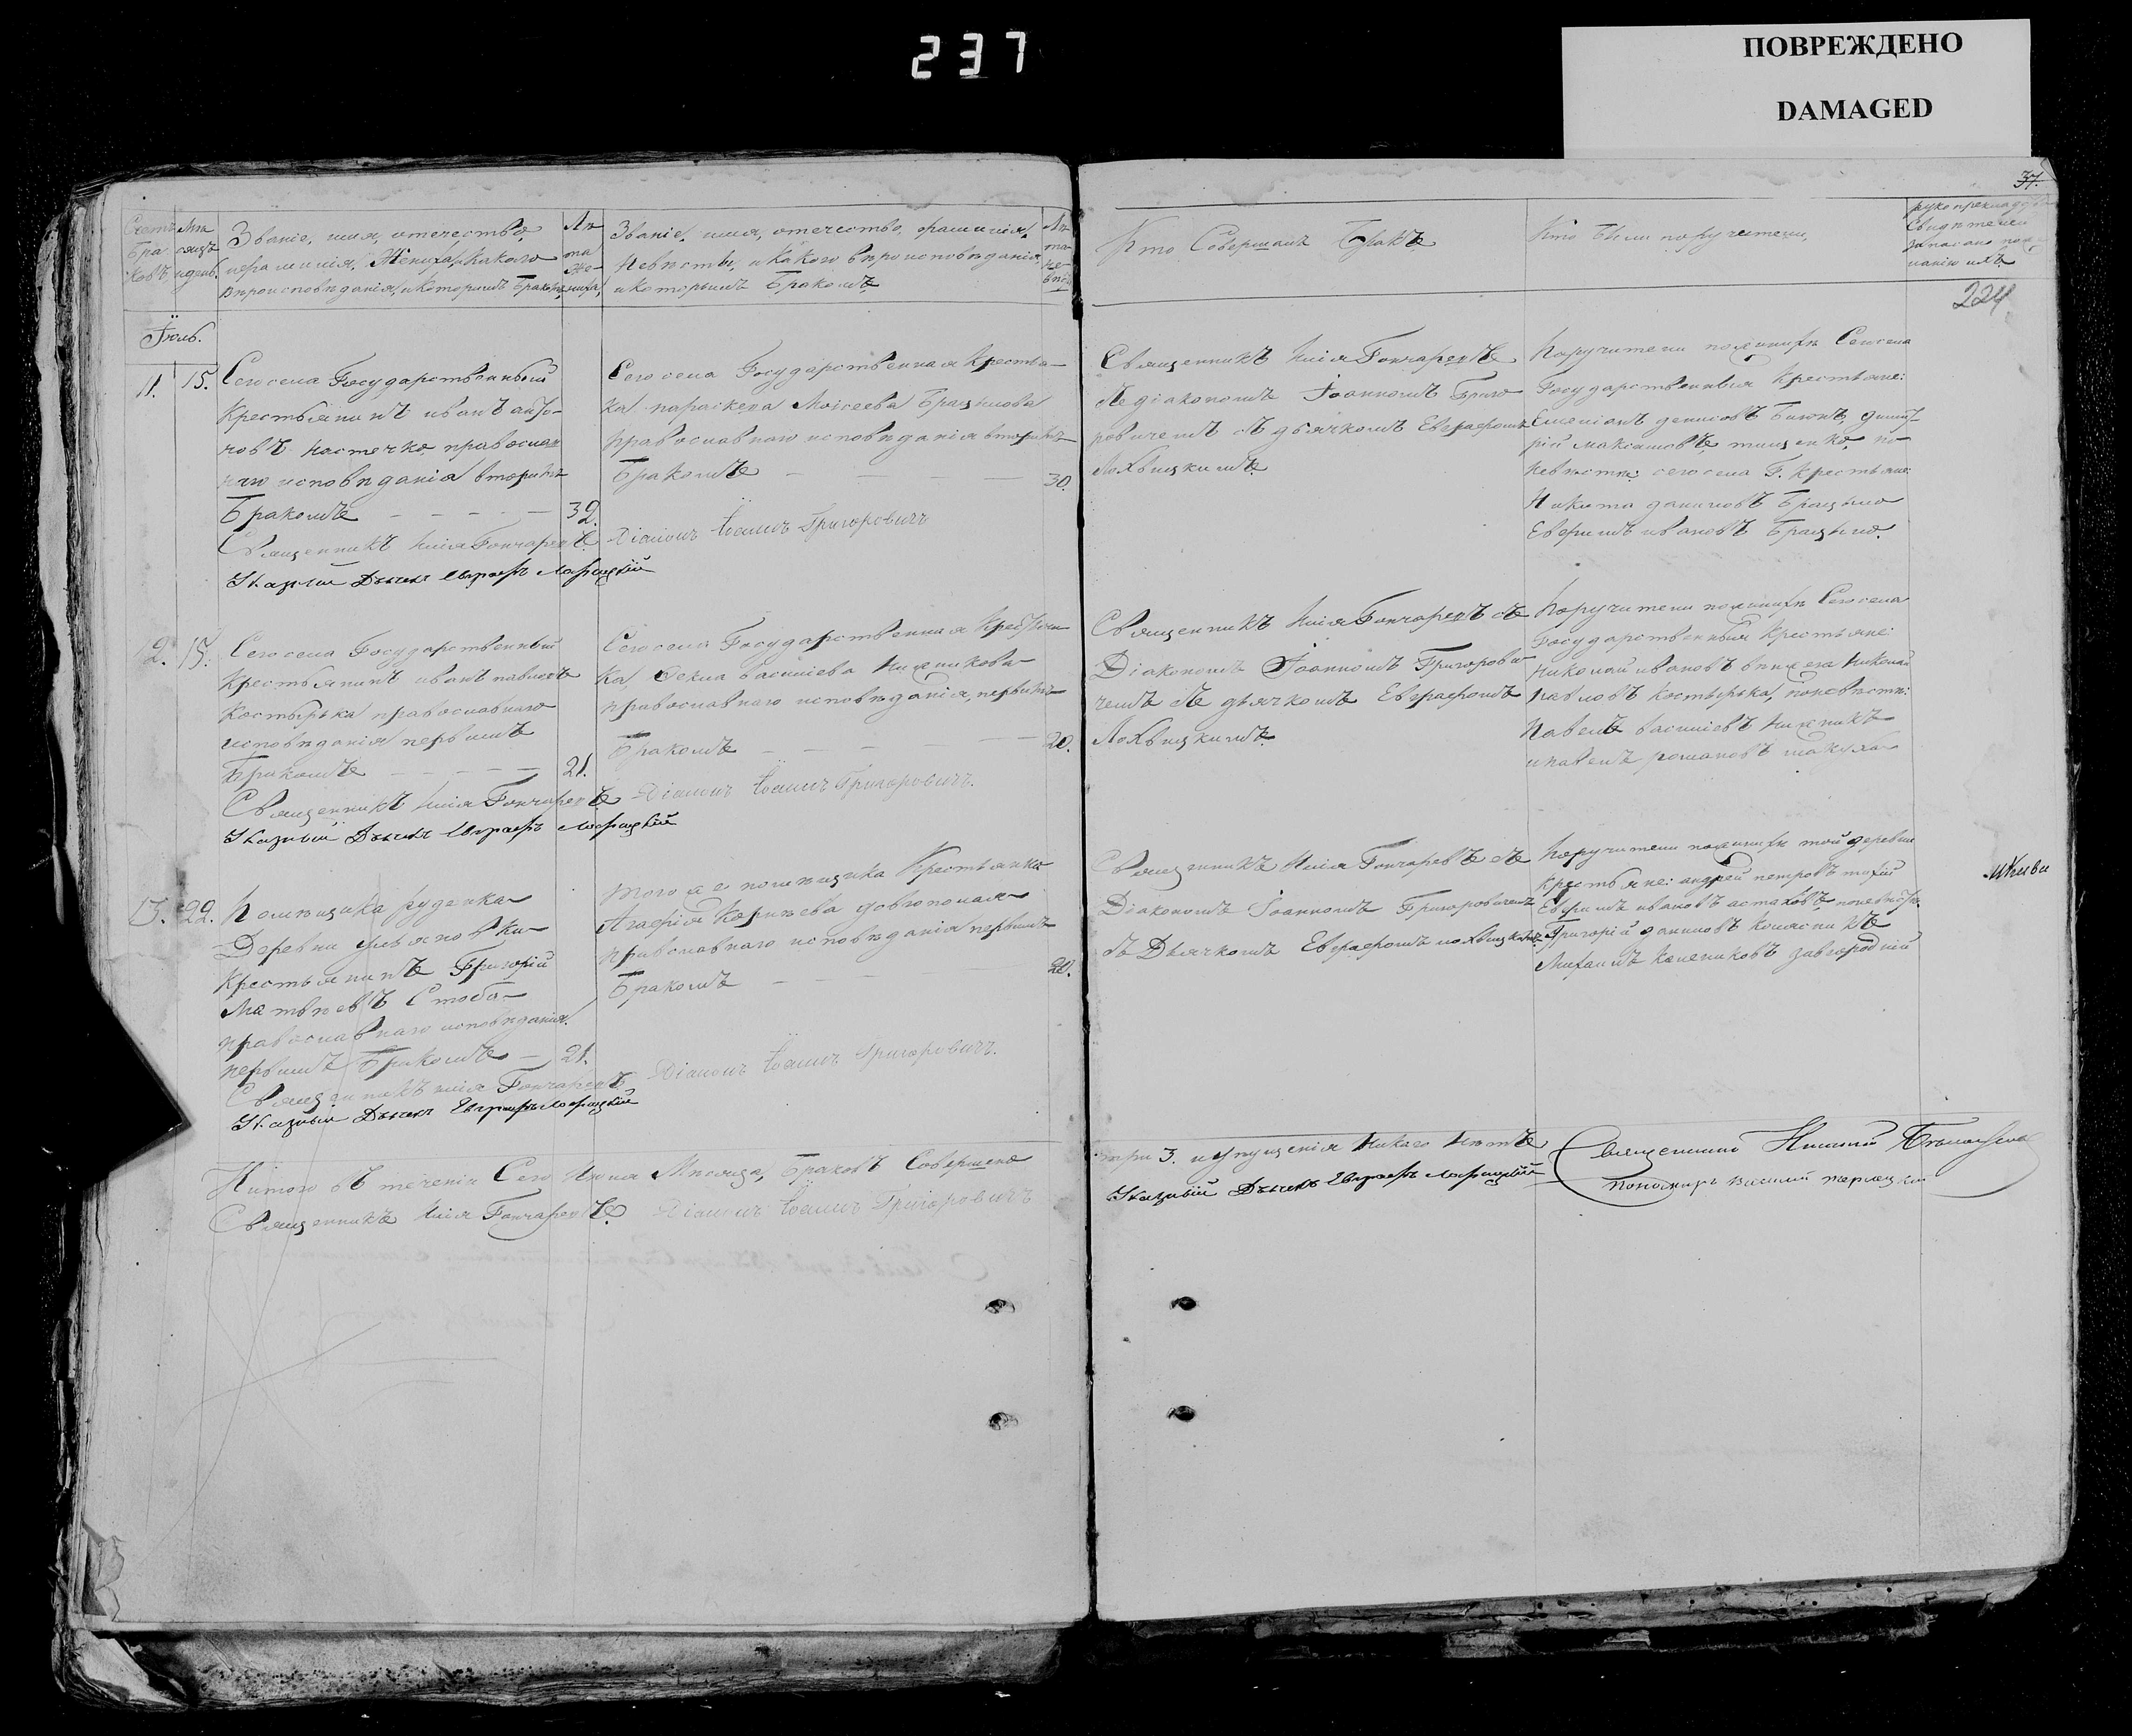 237
ПОВРЕЖДЕНО
DAMAGED
37.
224
Счетъ Бра ковъ
Мѣ сяцъ и день
Званіе, имя, отечество,
и фамилія, Жениха, какого
вѣроисповѣданія, и которымъ Бракомъ
Лѣ та Же ниха,
Званіе, имя, отечество, фамилія,
Невѣсты, и какого вѣроисповѣданія,
и которымъ Бракомъ
Лѣ та не вѣс
Кто Совершалъ Бракъ
Кто Были поручители,
Свидѣтелей
записано
Іюль.
11. 15.
Сего села Государственный
Крестьянинъ иванъ
православ
наго исповѣданія вторымъ
Бракомъ 32.
Священникъ Илія Гончаревъ
Указный Дьячекъ Евграфъ Лохвицкій
Сего села Государственная Крестья-
ка параскева Моисеева
православнаго исповѣданія вторымъ
Бракомъ 30.
Діаконъ Іоаннъ Григоровичъ
Священникъ Илія Гончаревъ
съ діакономъ Іоанномъ Григо
ровичемъ съ дьячкомъ Евграфомъ
Лохвицкимъ
Поручители по женихѣ Сего села
Государственныя Крестьяне:
денисовъ
максимовъ тищенко, по
невѣстѣ: сего села Г. крестьяне:
Никита даниловъ
Ефимъ ивановъ
12. 15.
Сего села Государственный
Крестьянинъ иванъ павловъ
Костырка православнаго
исповѣданія первымъ
Бракомъ 21.
Священникъ Илія Гончаревъ
Указный Дьячекъ Евграфъ Лохвицкій
Сего села Государственная Крестьян
ка, Фекла василіева
православнаго исповѣданія, первымъ
Бракомъ 20.
Діаконъ Іоаннъ Григоровичъ.
Священникъ Илія Гончаревъ съ
Діакономъ Іоанномъ Григорови
чемъ съ дьячкомъ Евграфомъ
Лохвицкимъ
Поручители по женихѣ Сего села
Государственныя Крестьяне:
Николай ивановъ Николай
павловъ Костырька, по невѣстѣ:
Павелъ василіевъ
и павелъ романовъ
13. 22.
Помѣщика руденка
Деревни
Крестьянинъ Григорій
Матвѣевъ Стоба
православнаго исповѣданія.
первымъ Бракомъ 21.
Священникъ илія Гончаревъ
Указный Дьячекъ Евграфъ Лохвицкій
того же помѣщика Крестьянка
Агафія
православнаго исповѣданія первымъ
Бракомъ 20.
Діаконъ Іоаннъ Григоровичъ.
Священникъ Илія Гончаревъ съ
Діакономъ Іоанномъ Григоровичемъ
съ Дьячкомъ Евграфомъ лохвицкимъ
Поручители по женихѣ той деревни
крестьяне: андрей петровъ
Ефимъ ивановъ астаховъ, по невѣстѣ.
Григорій даниловъ
Михаилъ завгородній
Итого въ теченіи Сего Іюля Мѣсяца, Браковъ Совершено
три 3. и упущенія никого нѣтъ
Священникъ Илія Гончаревъ
Діаконъ Іоаннъ Григоровичъ
Указный Дьячекъ Евграфъ Лохвицкій
Священникъ
Пономарь василій